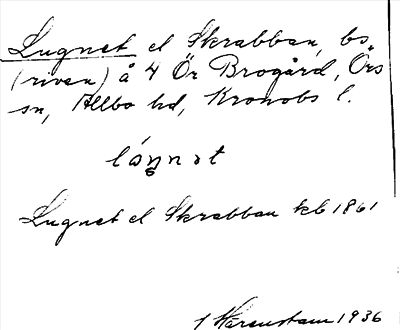 Lugnet el Skrabban, bs
(riven) å 4 Ör Brogård, Örs
sn, Allbo hd, Kronobs l.
lóŋnət
Lugnet el Skrabban kb 1861
Harenstam 1936